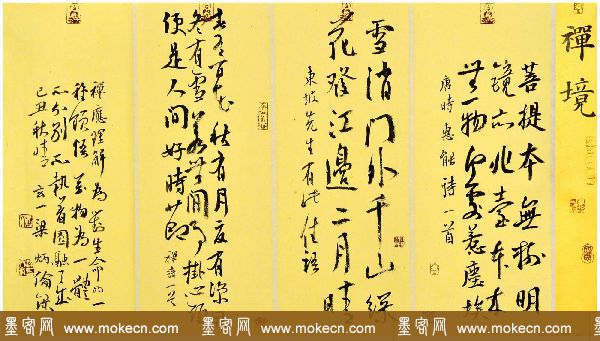 禪境
菩提本無樹明
鏡亦非臺本來
無一物何處惹塵埃
唐時惠能詩一首
雪消門外千山綠
花發江邊二月晴
東坡先生有此佳語
春有百花秋有月夏有涼
冬有雪若無閒事掛心頭
便是人間好時節
禪詩一首
禪應理解為對生命的一
種領悟萬物為一體
不分別不執著圓融了生
己丑秋時玄一梁炳倫
墨客网 www.mokecn.com 墨客网 www.mokecn.com 墨客网 www.mokecn.com